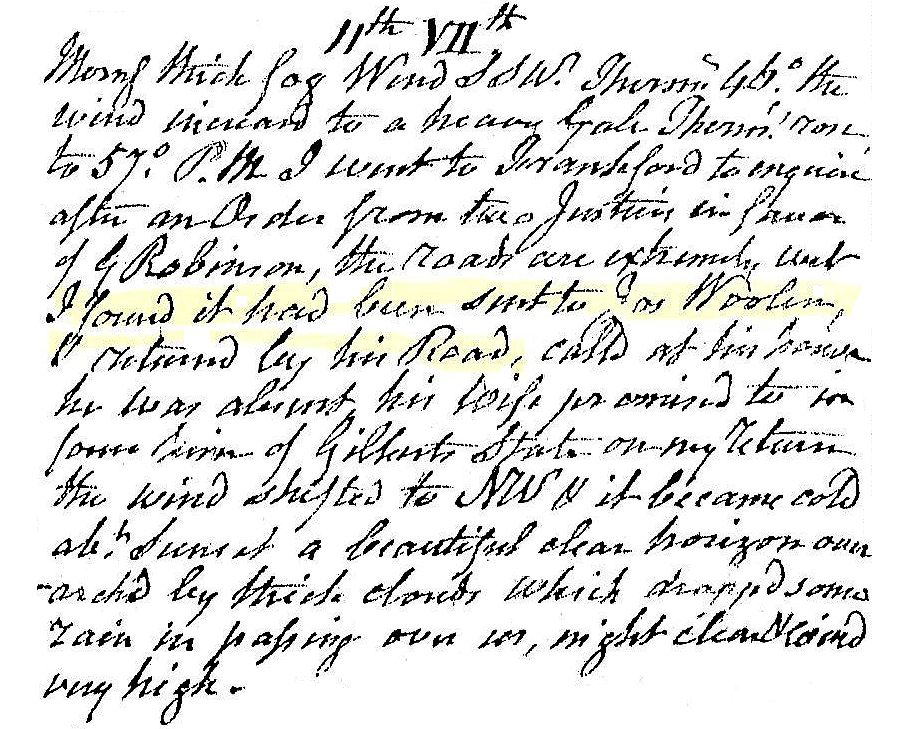 11th VIIth
Morng thick fog Wind SSW. Thermr 46° the
wind increasd to a heavy Gale Thermr. rose
to 57°. P.M I went to Frankford to enquire
after an Order from two Justices in favor
of G Robinson, the roads are extremely wet
I found it had been sent to Jos Woolen,
& returned by his Road, calld at his house
he was absent, his Wife promised to in
form him of Gilberts State on my return
the wind shifted to NW & it became cold
abt. Sunset a beautiful clear horizon over
arch'd by thick clouds which dropp'd some
rain in passing over us, night clear Wind
very high.